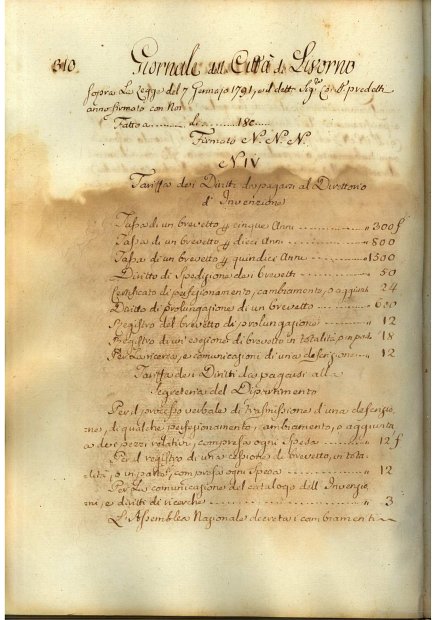 310. Giornale della Città di Livorno
sopra La Legge del 7 Gennajo 1791, e il dett. Sig.re Co. S. predetti
anno firmato con Noi
Fatto a ......... Li ......... 18c......
Firmato N. N. N.
N IV
Tariffa dei Diritti da pagarsi al Direttorio
d'Invenzione
Tassa di un brevetto p cinque Anni ........ " 300 f
Tassa di un brevetto p dieci Anni ........ " 800
Tassa di un brevetto p quindici Anni ........ " 1500
Diritto di Spedizione dei brevetti ........ " 50
Certificato di perfezionamento, cambiamento, o aggiunt. " 24
Diritto di prolungazione di un brevetto ........ " 600
Registro del brevetto di prolungazione ........ " 12
Registro di una cessione di brevetto in totalità, o in parte 18
Per la ricerca, e comunicazioni di una descrizione ..... " 12
Tariffa dei Diritti da pagarsi alla
Segreteria del Dipartimento
Per il processo verbale di trasmissione d'una descrizio,
ne, di qualche perfezionamento, cambiamento, o aggiunta
e dei pezzi relativi, compresa ogni Spesa ........ " 12 f
Per il registro di una cessione di brevetto, in tota,
lità, o in parte, compresa ogni Spesa ........ " 12
Per La comunicazione del catalogo dell'Invenzio,
ni, e diritti di ricerche ........ " 3
L'Assemblea Nazionale decreta i cambiamenti